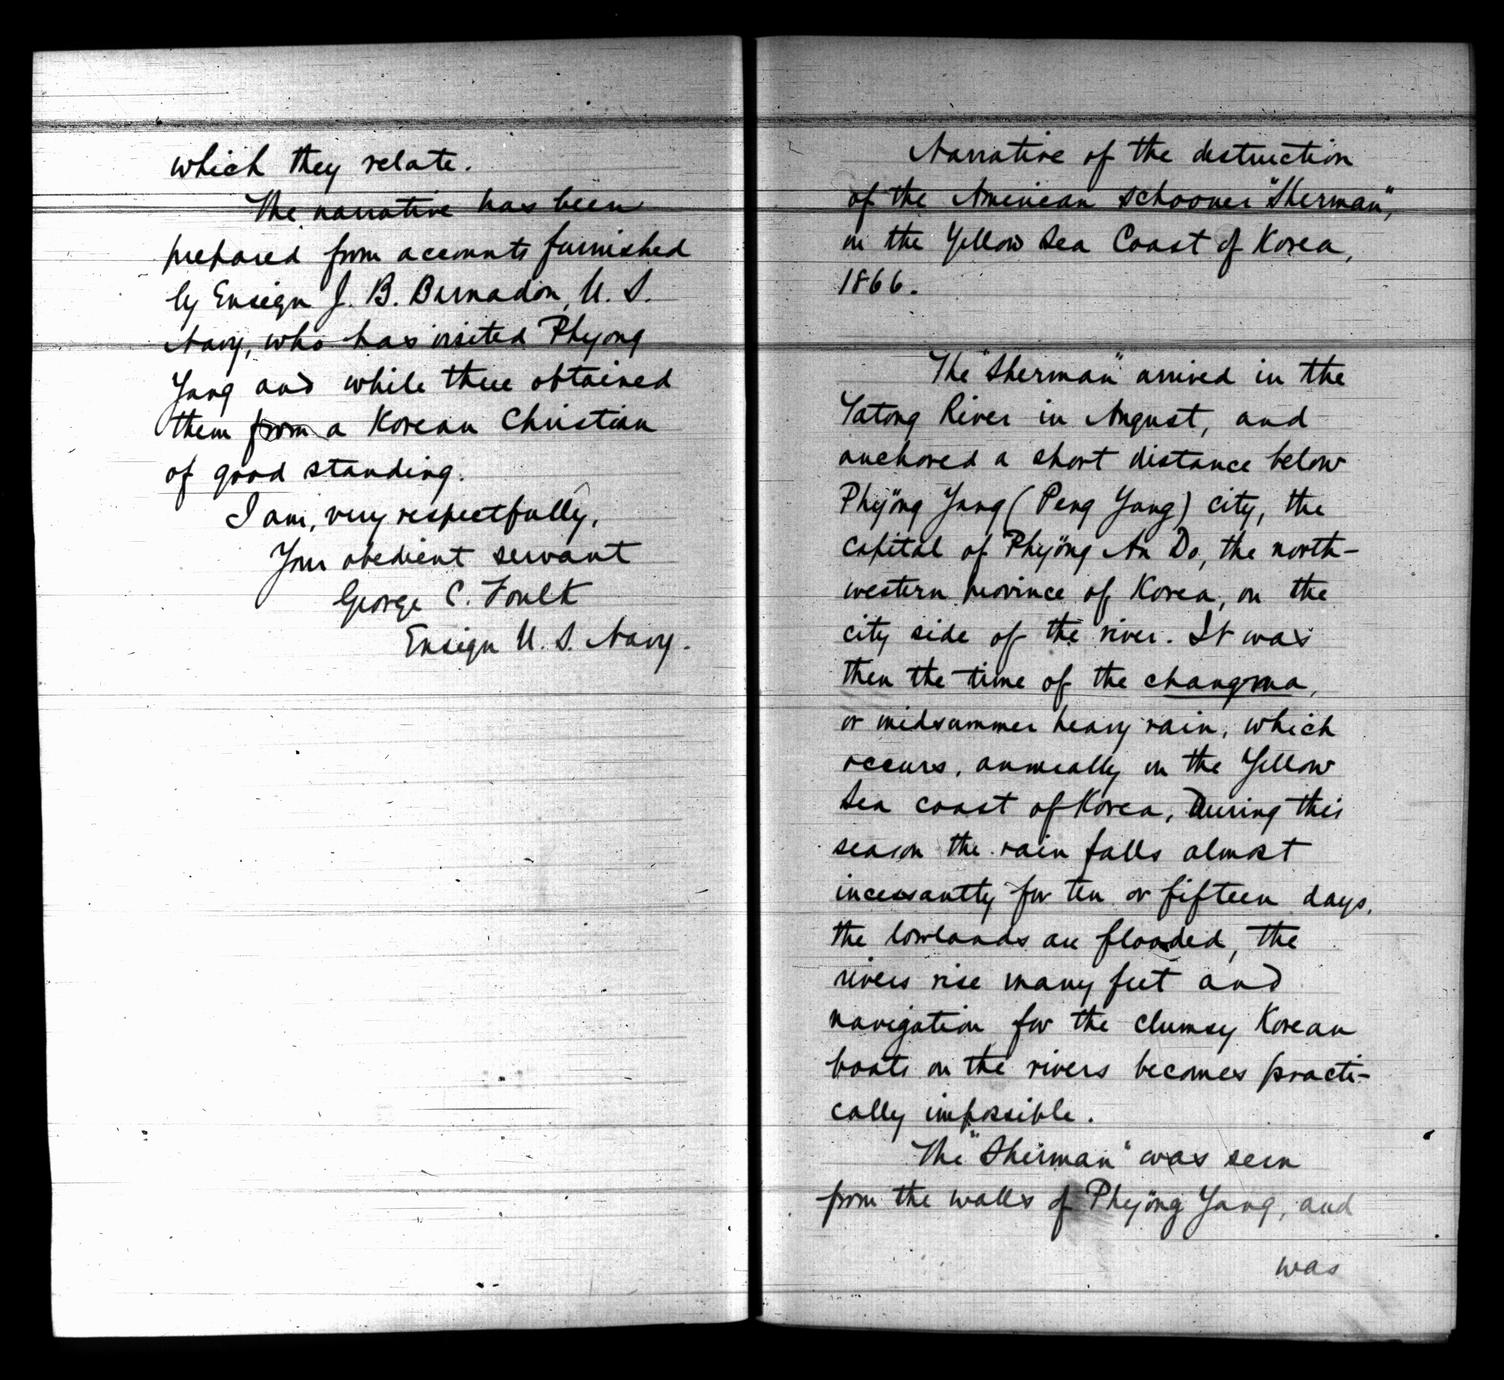 which they relate.
The narrative has been
prepared from accounts furnished
by Ensign J. B. Bernadon, U. S.
Navy, who has visited Phyong
Yang and while there obtained
them from a Korean Christian
of good standing.
I am, very respectfully,
Your obedient servant
George C. Foulk
Ensign U. S. Navy.
Narrative of the destruction
of the American schooner "Sherman",
in the Yellow Sea Coast of Korea,
1866.
The "Sherman" arrived in the
Tatong River in August, and
anchored a short distance below
Phyöng Yang (Peng Yang) city, the
capital of Phyöng An Do, the north-
western province of Korea, on the
city side of the river. It was
then the time of the changma,
or midsummer heavy rain, which
occurs, annually in the Yellow
Sea coast of Korea, During this
season the rain falls almost
incessantly for ten or fifteen days,
the lowlands are flooded, the
rivers rise many feet and
navigation for the clumsy Korean
boats on the rivers becomes practi-
cally impossible.
The "Sherman" was seen
from the walls of Phyöng Yang, and
was